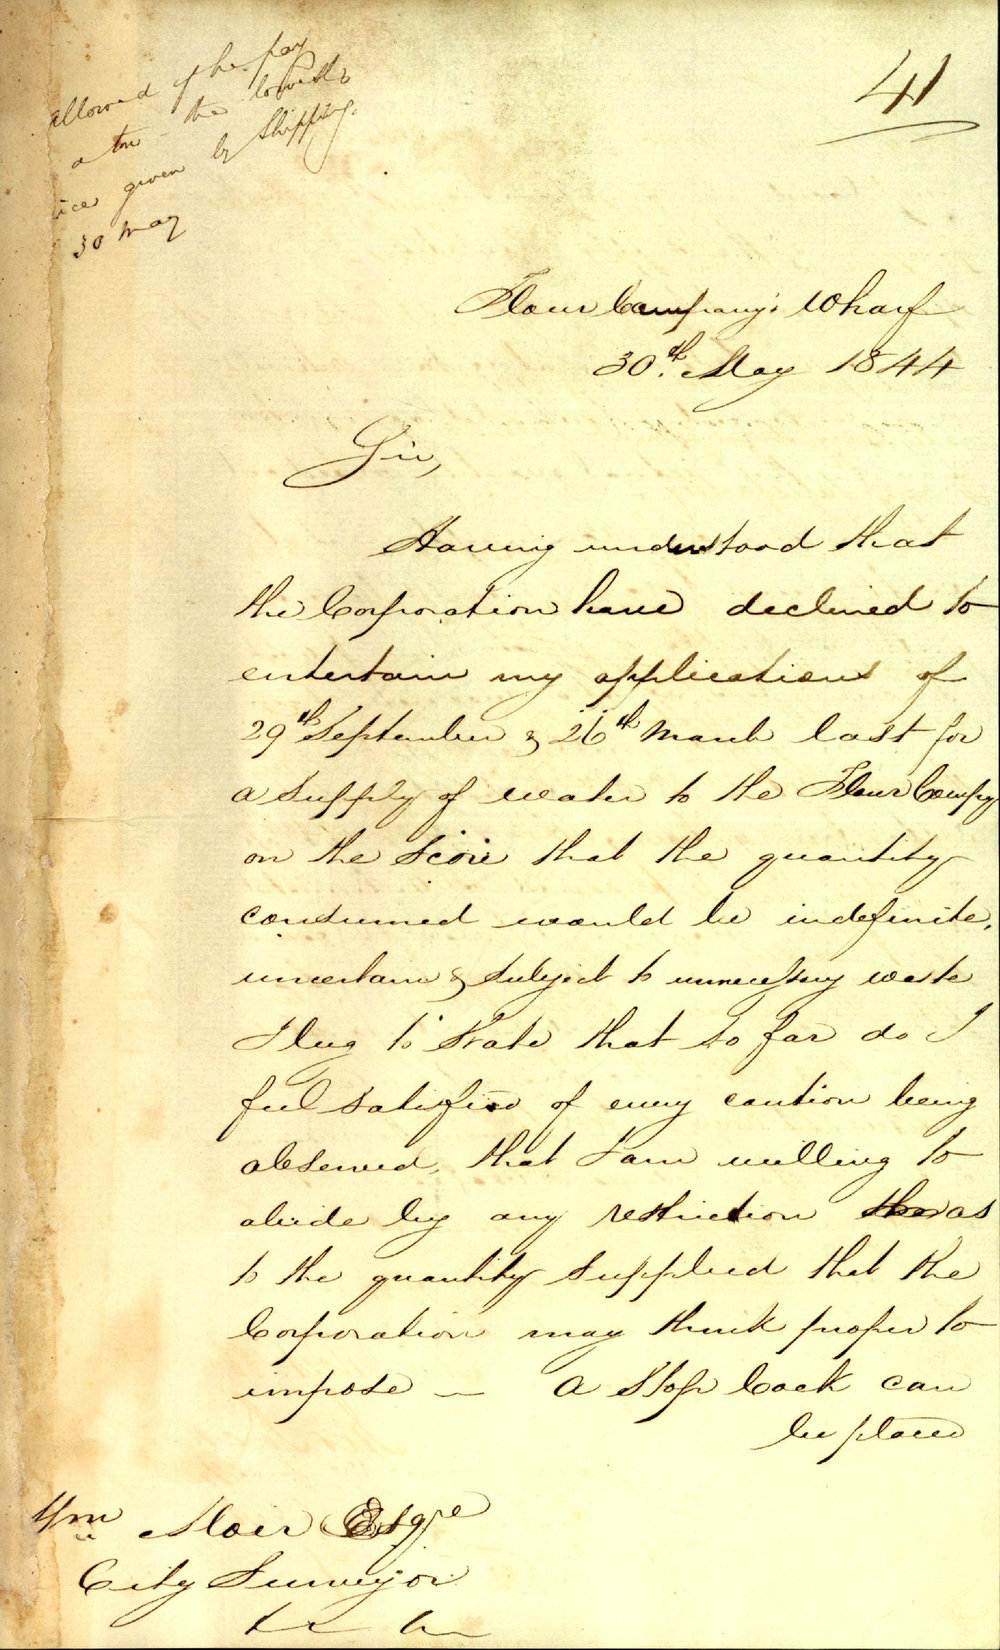 allowed if he pay
a ton the lowest
given by Shipping.
30 May
41
Flour Company's Wharf
30th. May 1844
Sir,
Having understood that
the Corporation have declined to
entertain my applications of
29th September & 26th March last for
a supply of water to the Flour Compy
on the score that the quantity
consumed would be indefinite,
uncertain & subject to unnecessary waste
I beg to state that so far do I
feel satisfied of every caution being
observed, that I am willing to
abide by any restriction as
to the quantity supplied that the
Corporation may think proper to
impose — A Stop Cock can
be placed
Wm Moir Esqre
City Surveyor